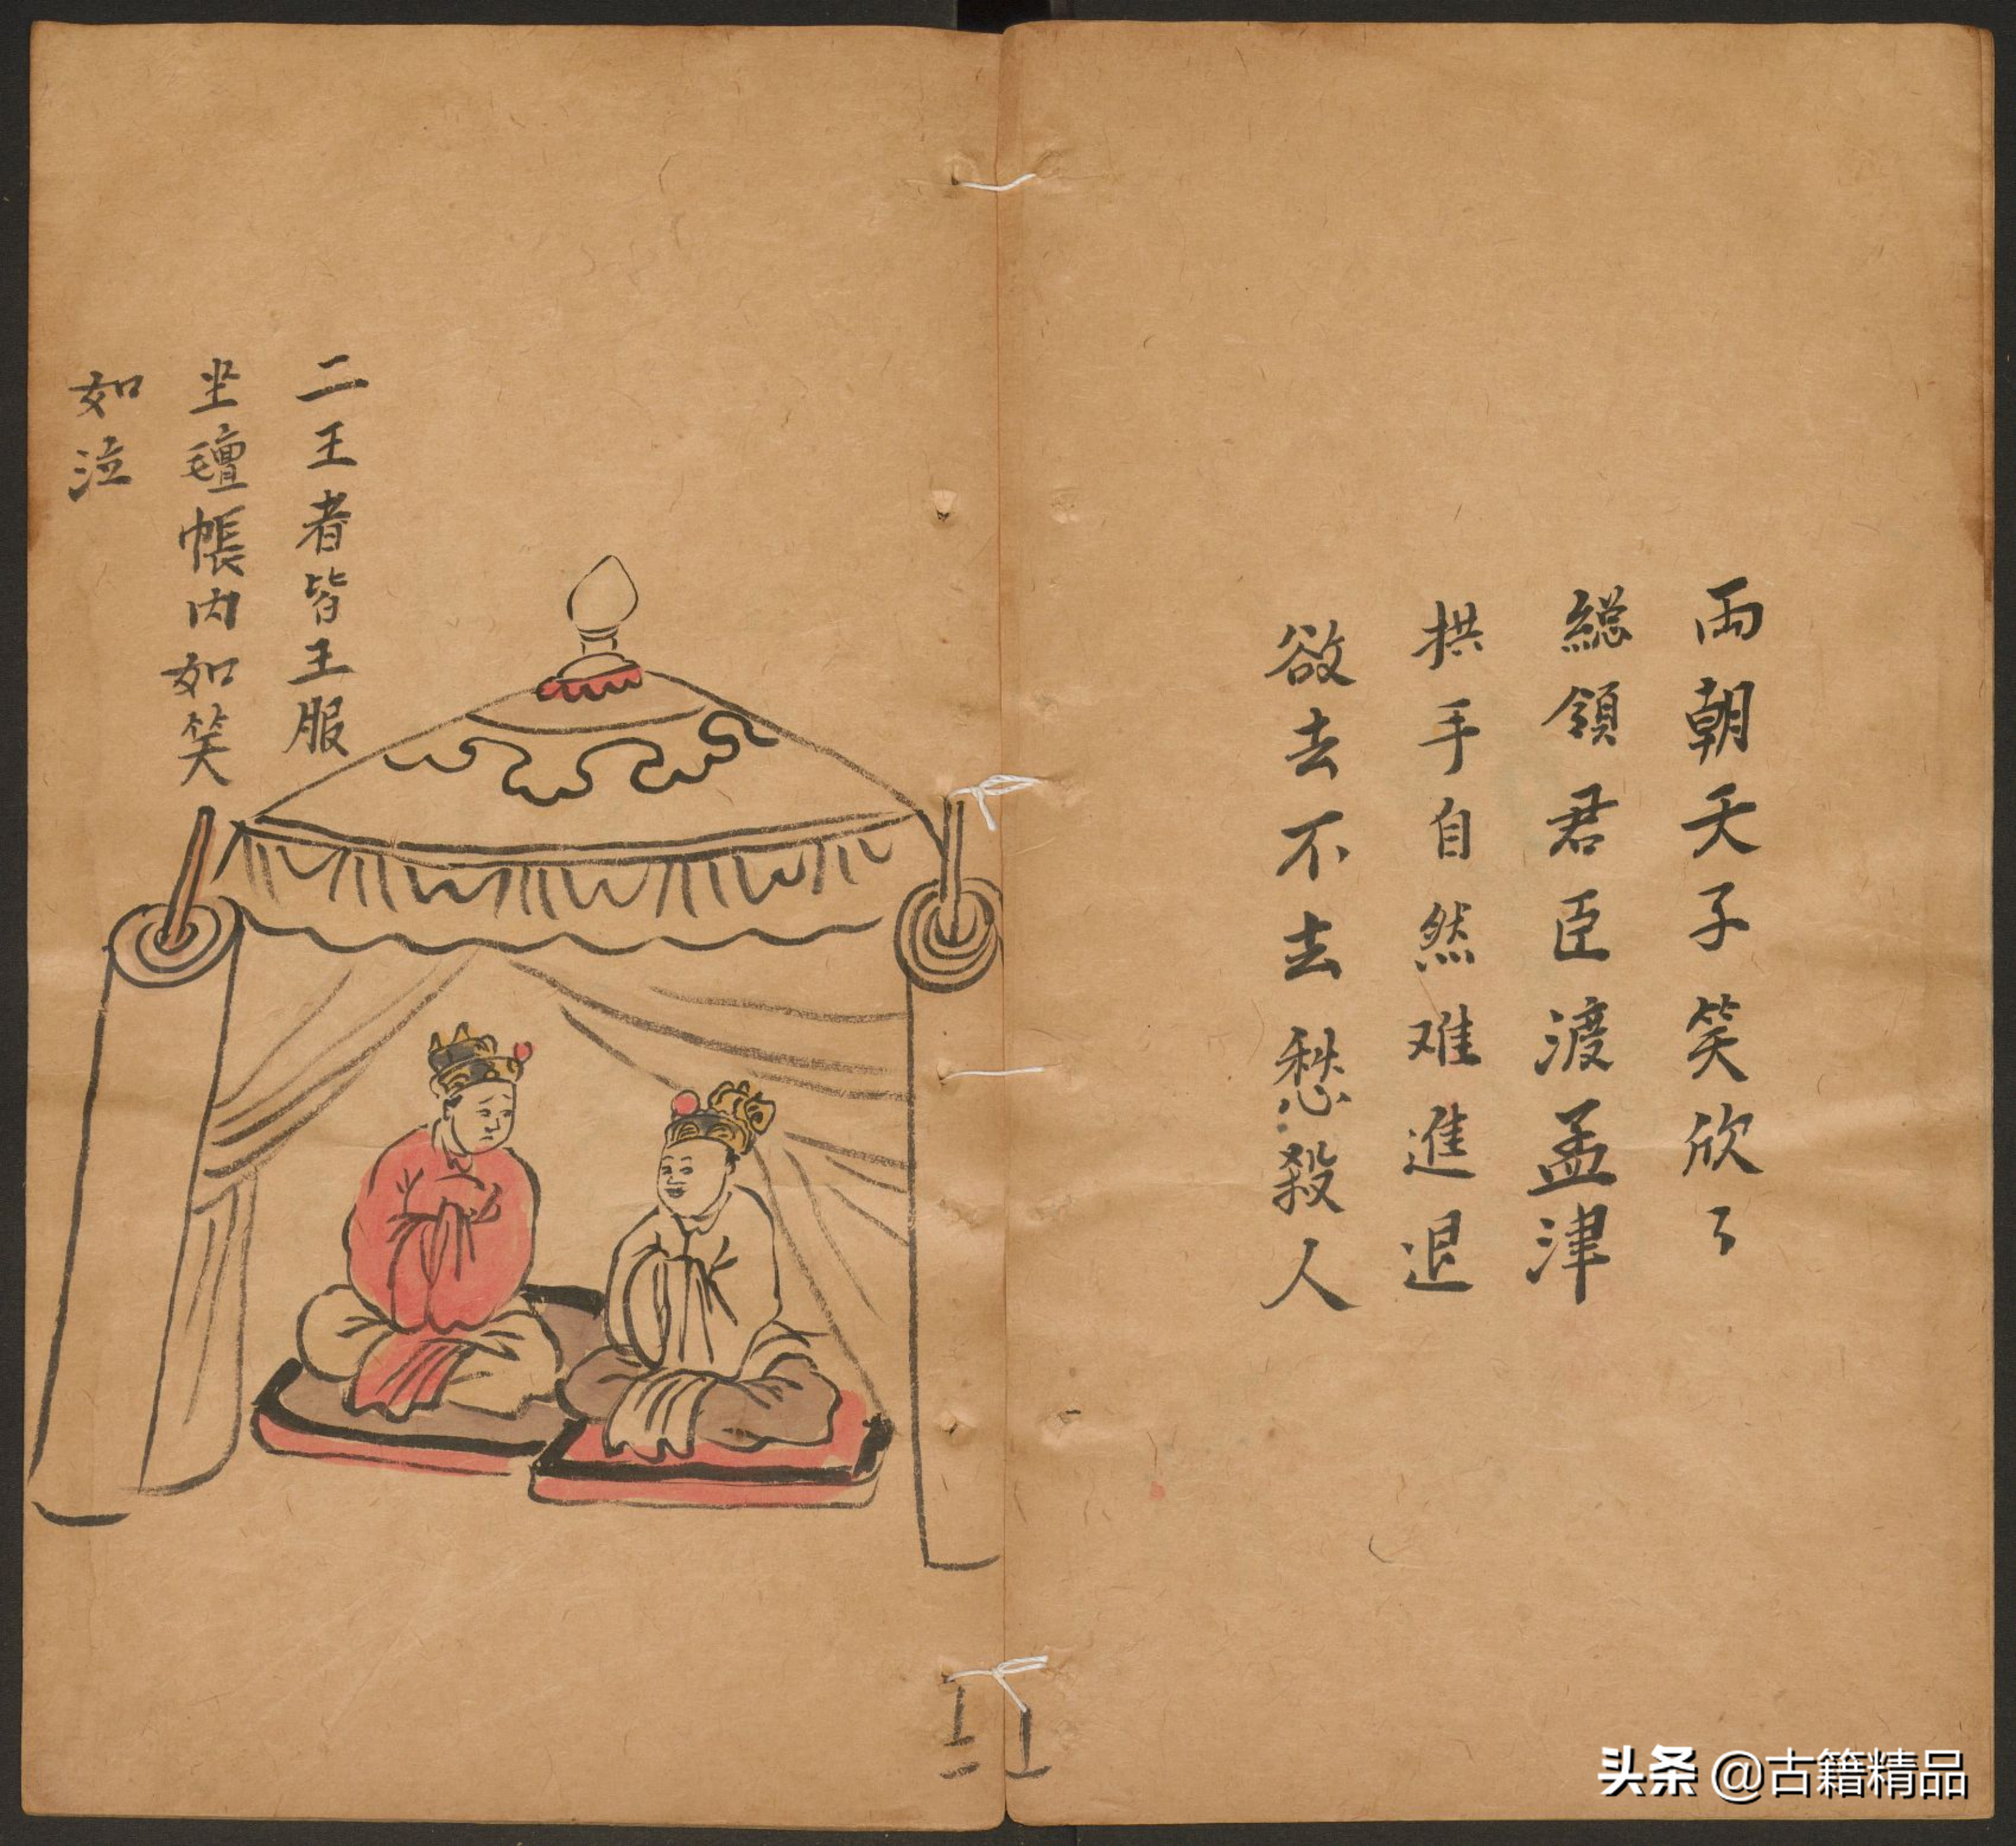 両朝天子笑欣々
総領君臣渡孟津
拱手自然难進退
欲去不去愁殺人
二王者皆王服
坐氊帳内如笑
如泣
头条 @古籍精品